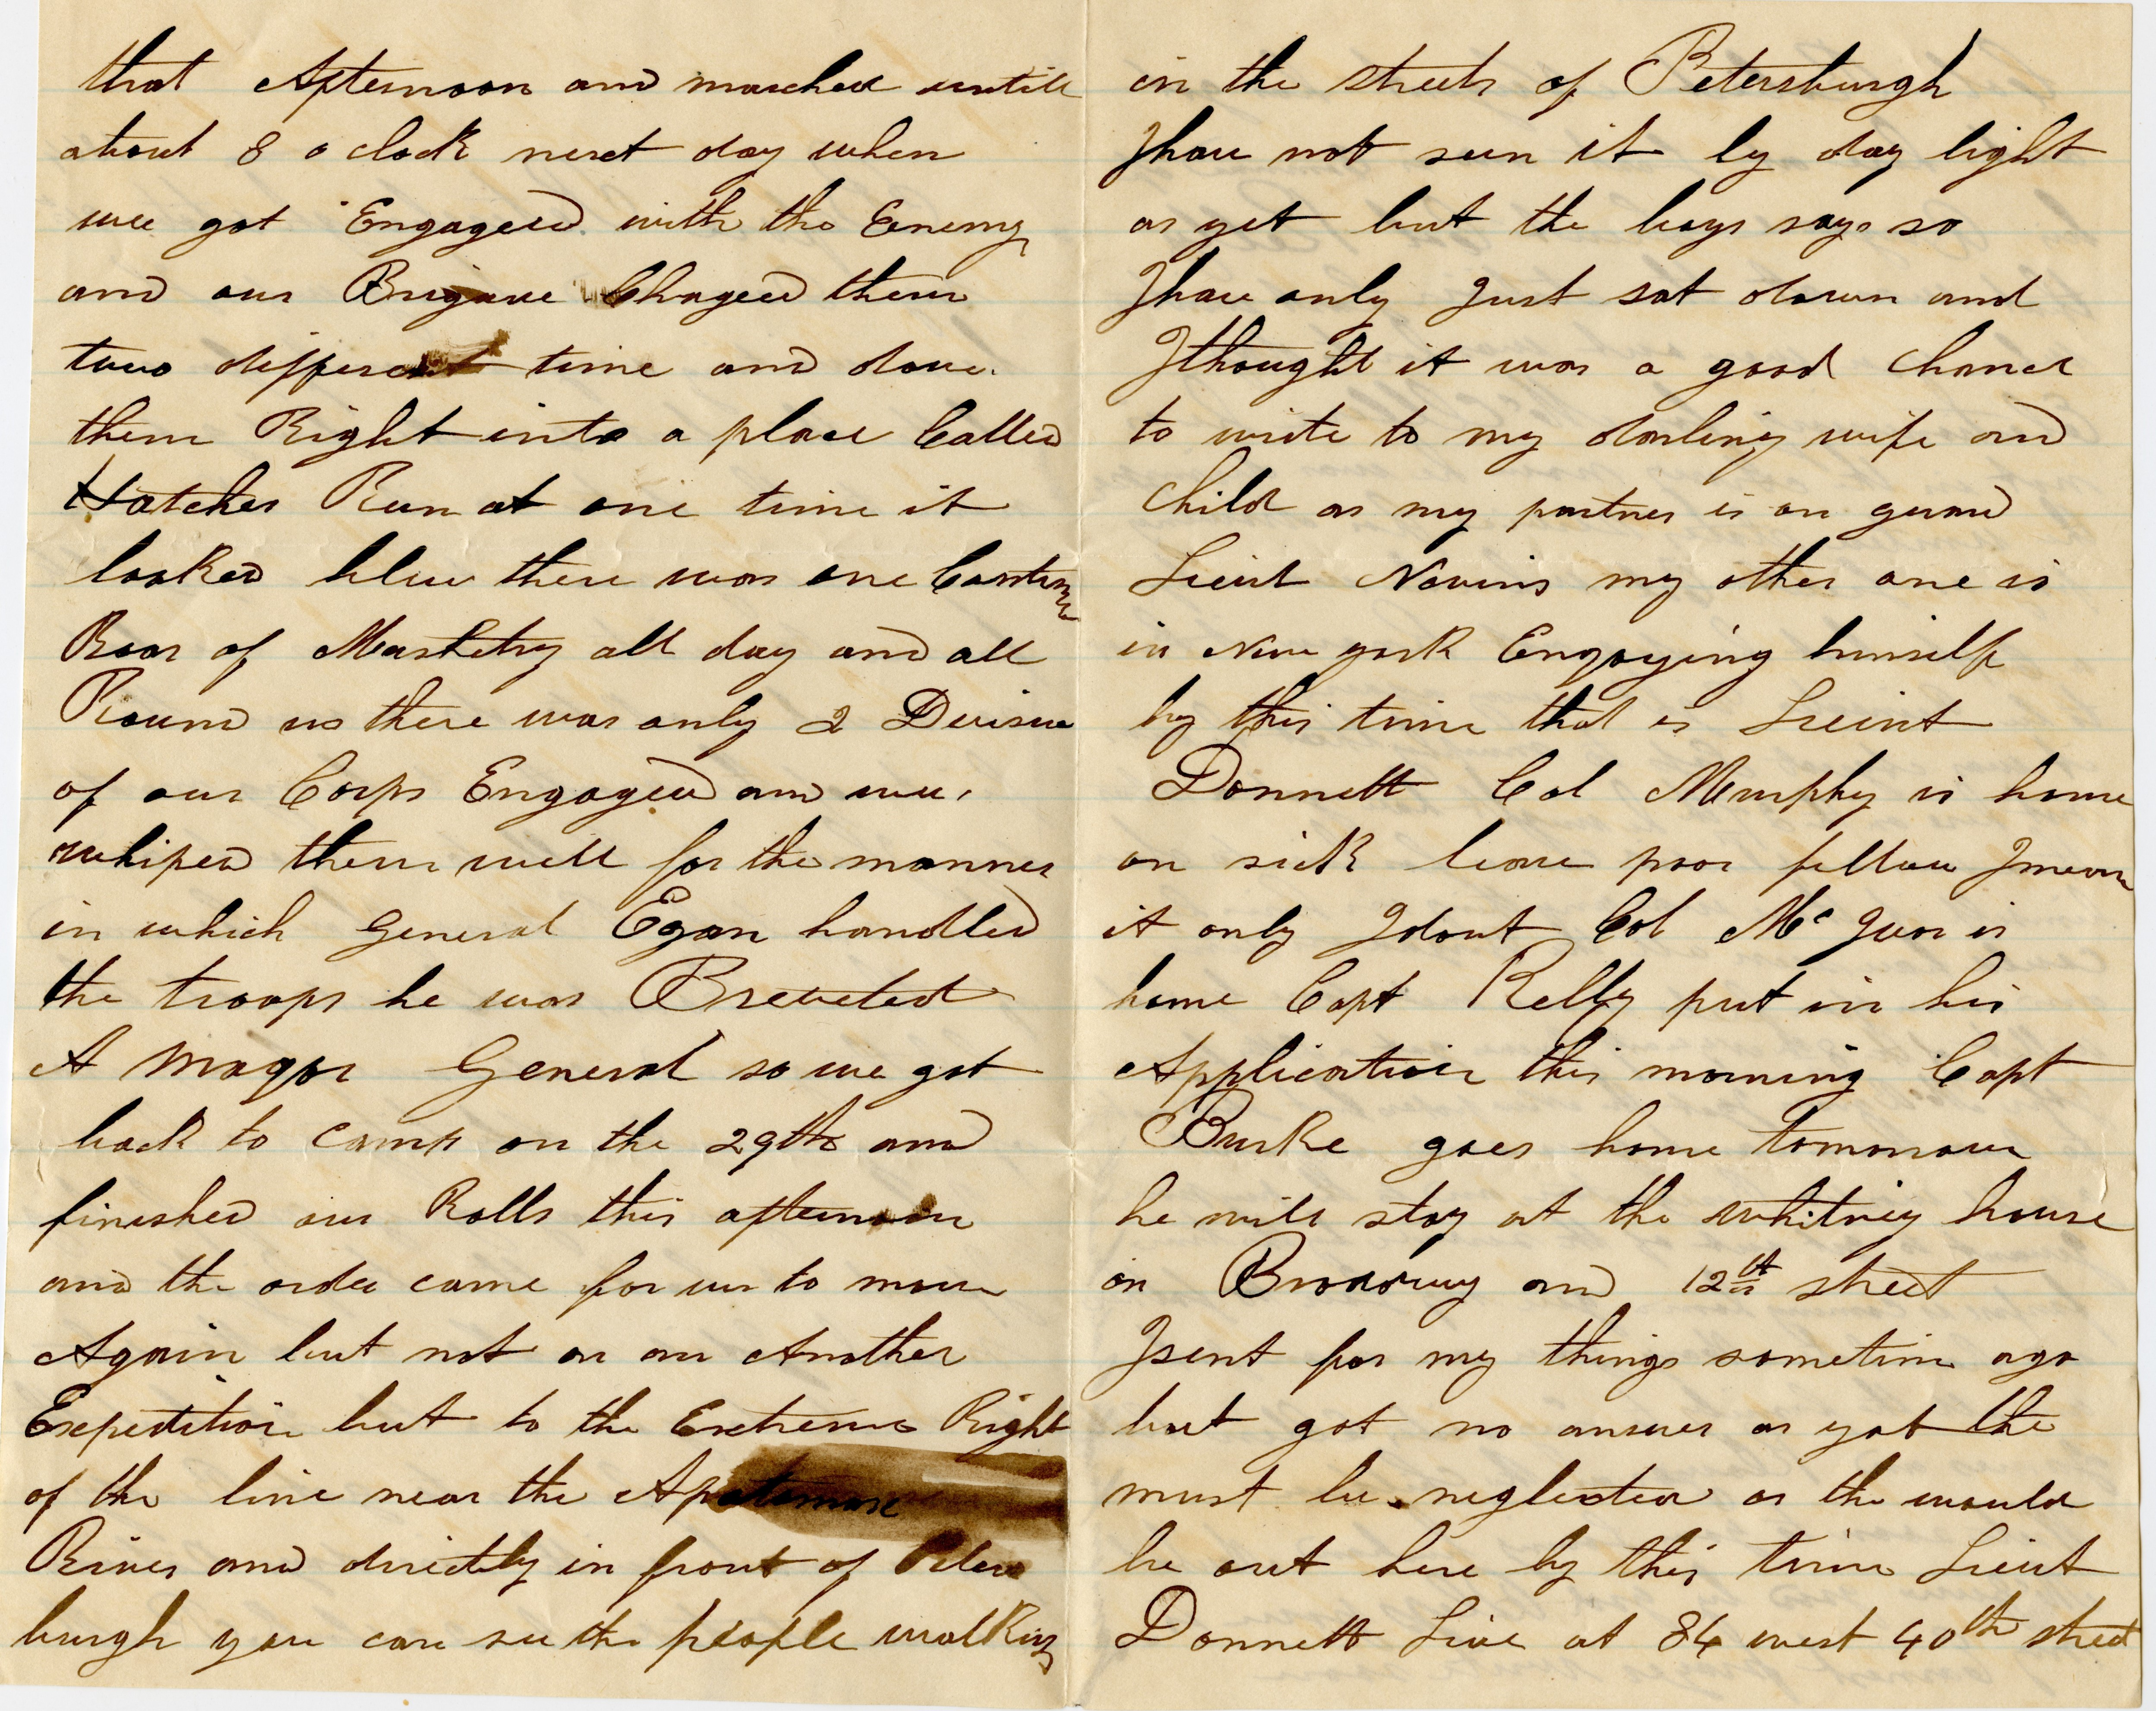 that Afternoon and marched untill
about 8 o clock next day when
wee got Engageed with the Enemy
and our Brigade Chageed them
two different time and dove
them Right into a place Called
Hatches Run at one time it
looked blue there was one Continu
Roar of Musketry all day and all
Round us there was only 2 Devision
of our Corps Engaged and wee
whiped them well for the manner
in which General Egan handled
the troops he was Breveted
A Magor General so we got
back to Camp on the 29th and
fineshed our Rolls this afternoon
and the order came for us to move
Again but not on an Another
Expedition but to the Extreme Right
of the line near the Apatomax
River and directly in front of Peters
burgh you can see the people walking
in the streets of Petersburgh
I have not seen it by day light
as yet but the boys says so
I have only Just sat down and
I thought it was a good Chance
to write to my darling wife and
Child as my partner is on guard
Lieut Nevins my other one is
in New york Engoying himself
by this time that is Lieut
Donnett Col Murphy is home
on sick leave poor fellow I mean
it only I dont Col Mc Ivor is
home Capt Kelly put in his
Application this morning Capt
Burke goes home tomorrow
he will stay at the whitney house
on Brodway and 12th street
I sent for my things sometime ago
but got no answer as yet the
must be neglected as the would
be out here by this time Lieut
Donnett Live at 84 west 40th street